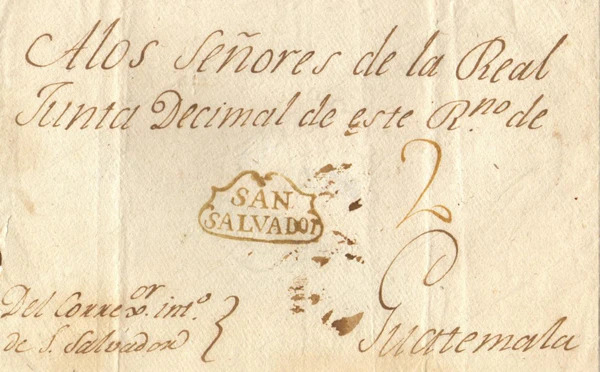 Alos Señores de la Real
Junta Decimal de este R.no de
SAN
SALVADOR
2
Del Corre.or int.o
de S. Salvador
Guatemala